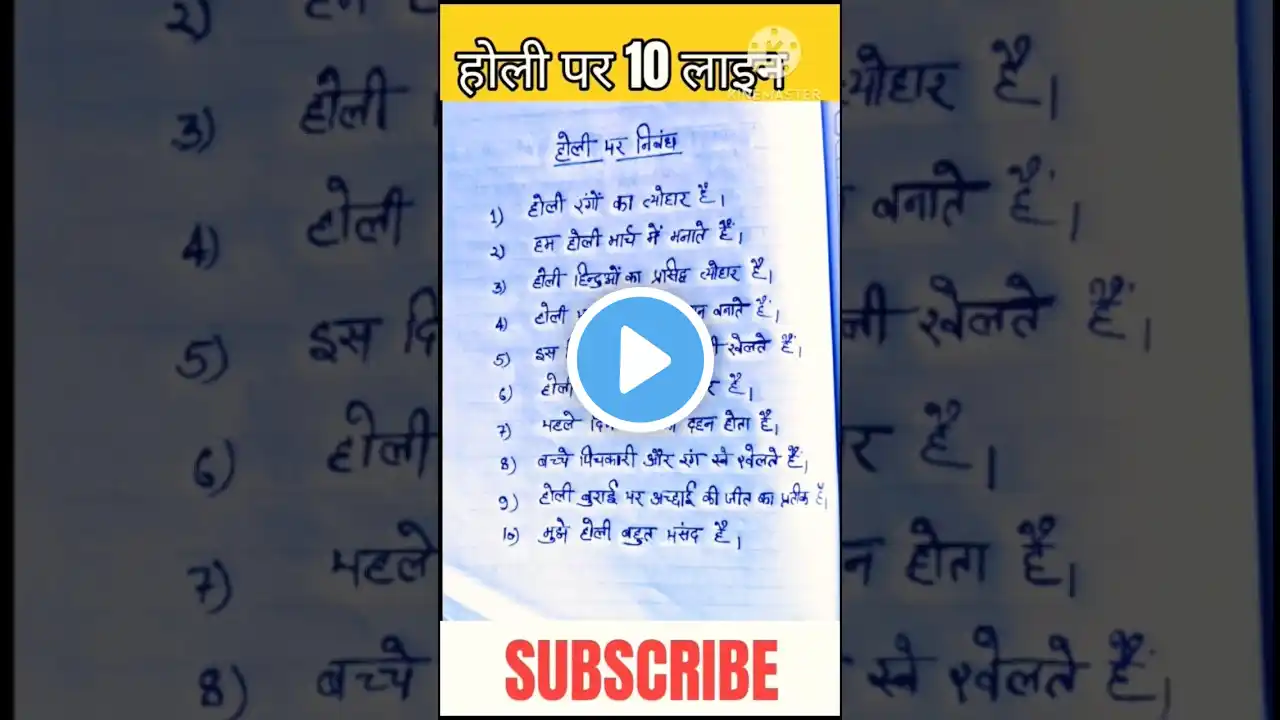 होली पर 10 लाइन
KINEMASTER
होली पर निबंध
1) होली रंगों का त्योहार है।
2) हम होली मार्च में मनाते हैं।
3) होली हिन्दुओं का प्रसिद्ध त्योहार है।
4) होली बनाते हैं।
5) इस खेलते हैं।
6) होली है।
7) पहले दहन होता है।
8) बच्चे पिचकारी और रंग से खेलते हैं।
9) होली बुराई पर अच्छाई की जीत का प्रतीक है
10) मुझे होली बहुत पसंद है।
SUBSCRIBE